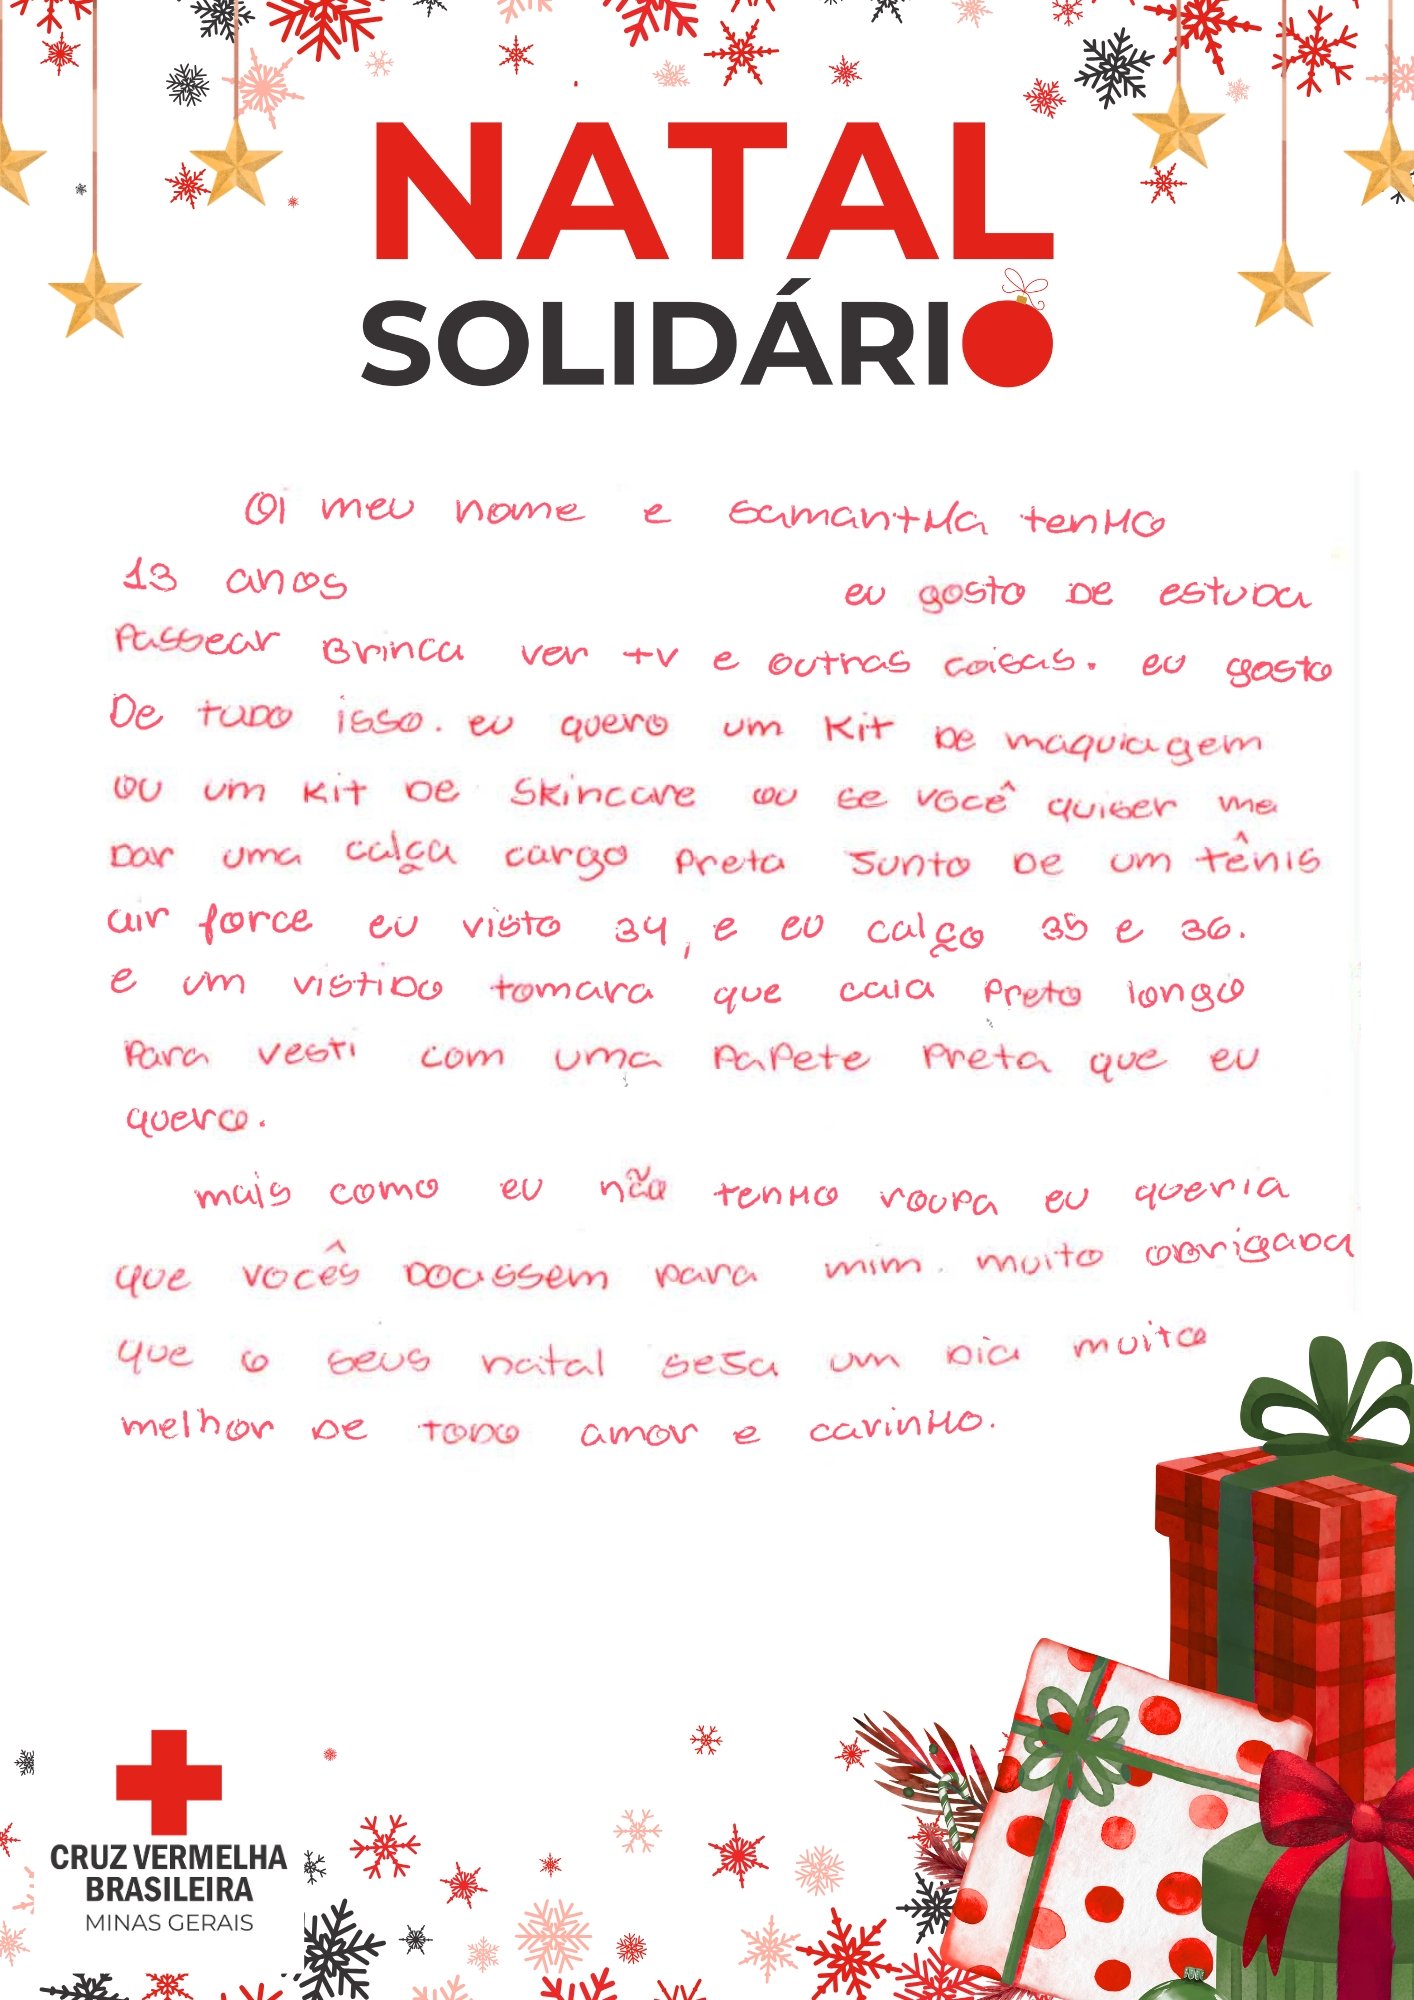 NATAL
SOLIDÁRIO
Oi meu nome e Samantha tenho
13 anos eu gosto de estuda
Passear Brinca ver tv e outras coisas. eu gosto
De tudo isso. eu quero um Kit de maquiagem
ou um Kit de Skincare ou se você quiser me
Dar uma calça cargo preta Junto de um tênis
air force eu visto 34, e eu calço 35 e 36.
e um vistido tomara que caia preto longo
Para vesti com uma Papete Preta que eu
quero.
mais como eu não tenho roupa eu queria
que vocês doassem para mim. muito obrigada
que o seus natal seja um dia muito
melhor de todo amor e carinho.
CRUZ VERMELHA
BRASILEIRA
MINAS GERAIS